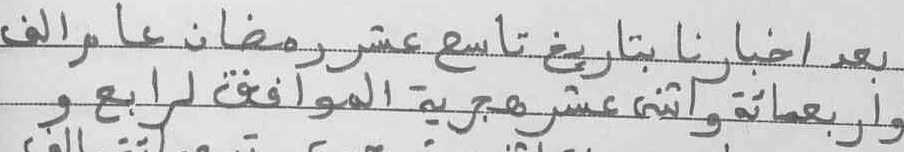 بعد اخبارنا بتاريخ تاسع عشر رمضان عام الف
واربعمائة واثنى عشر هجرية الموافق لرابع و